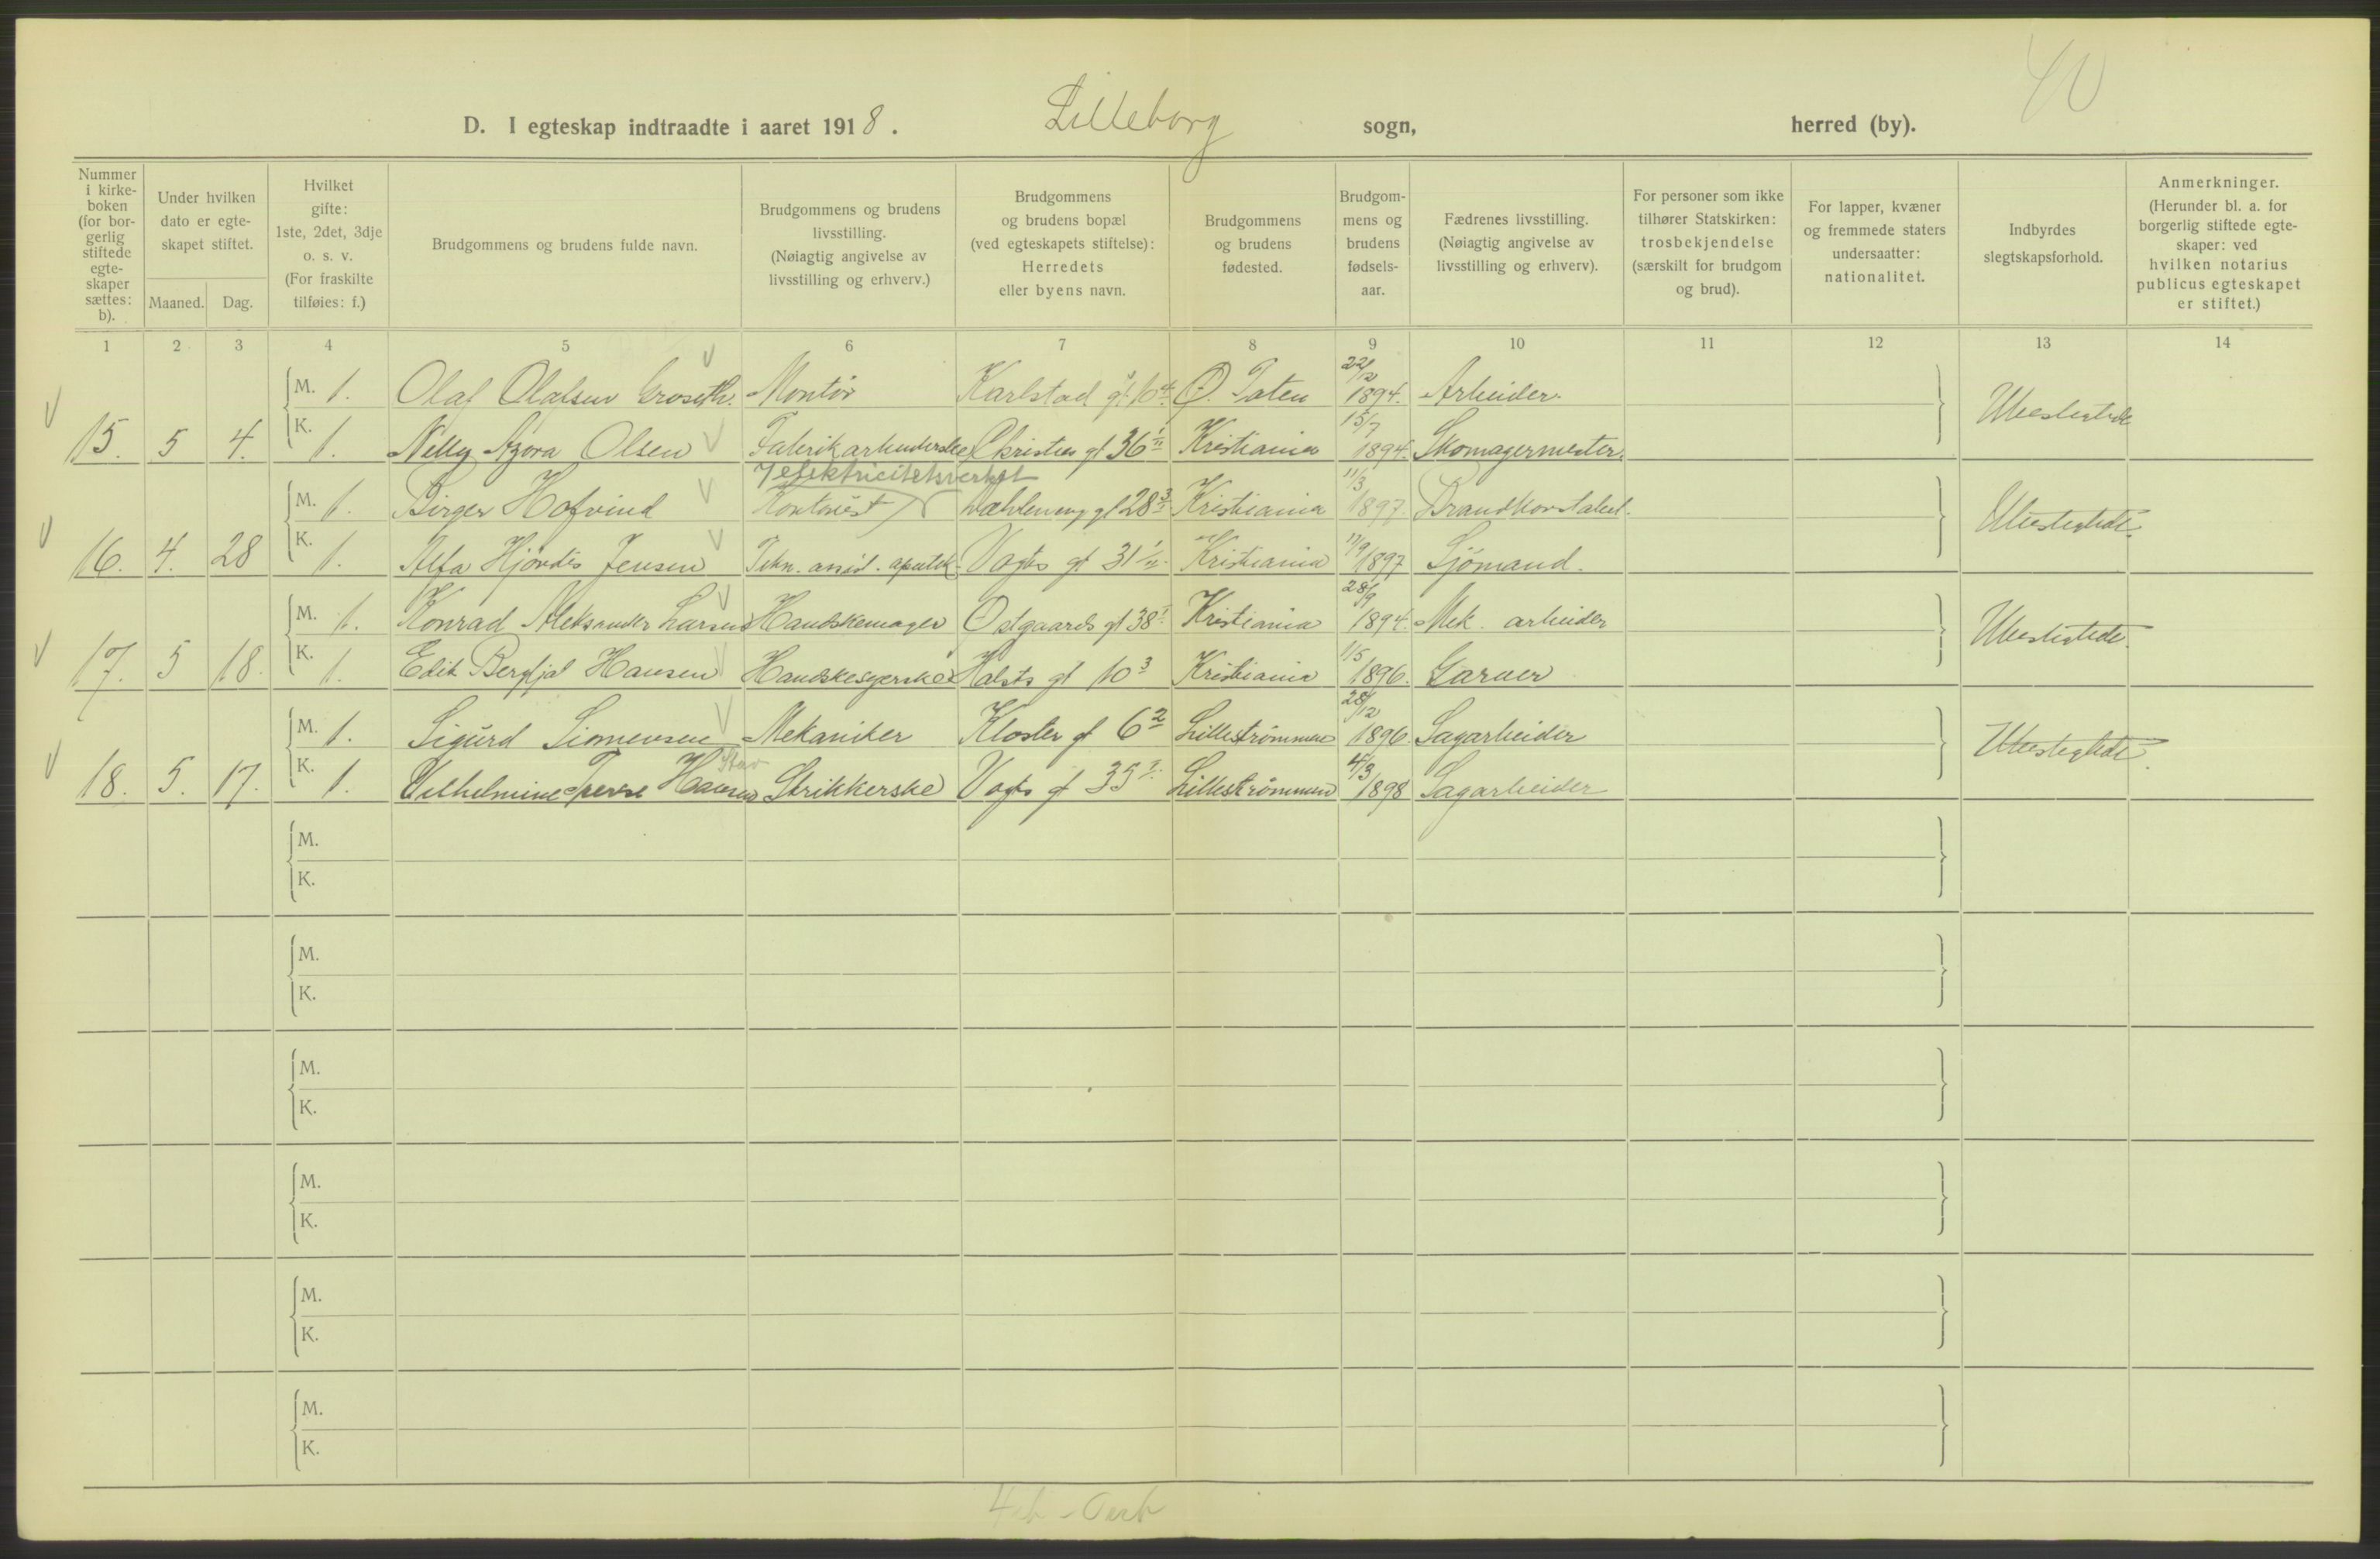 40
D. I egteskap indtraadte i aaret 1918. Lilleborg sogn, herred (by).
Nummer i kirke-boken (for bor-gerlig stiftede egte-skaper sættes: b).
Under hvilken dato er egte-skapet stiftet.
Maaned. Dag.
Hvilket gifte: 1ste, 2det, 3dje o. s. v. (For fraskilte tilføies: f.)
Brudgommens og brudens fulde navn.
Brudgommens og brudens livsstilling. (Nøiagtig angivelse av livsstilling og erhverv.)
Brudgommens og brudens bopæl (ved egteskapets stiftelse): Herredets eller byens navn.
Brudgommens og brudens fødested.
Brudgom-mens og brudens fødsels-aar.
Fædrenes livsstilling. (Nøiagtig angivelse av livsstilling og erhverv).
For personer som ikke tilhører Statskirken: trosbekjendelse (særskilt for brudgom og brud).
For lapper, kvæner og fremmede staters undersaatter: nationalitet.
Indbyrdes slegtskapsforhold.
Anmerkninger. (Herunder bl. a. for borgerlig stiftede egte-skaper: ved hvilken notarius publicus egteskapet er stiftet.)
1 2 3 4 5 6 7 8 9 10 11 12 13 14
M. 1. Olaf Olafsen Montør Karlstad gt. 10 4 Ø. Toten 22/12 1894. Arbeider. Ubeslegtede
15. 5 4. K. 1. Nelly Azora Olsen Fabrikarbeiderske Christies gt 36 1/II Kristiania 15/7 1894. Skomagermester.
M. 1. Birger Hofvind Kontorist elektricitetsverket gt 28 3 Kristiania 11/3 1897. Brandkonstabel. Ubeslegtede.
16. 4. 28 K. 1. Alfa Hjørdis Jensen Tekn. assist. apotek. Vogts gt 31 1/II. Kristiania 17/9 1897 Sjömand.
M. 1. Konrad Aleksander Larsen Handskemager Østgaards gt 38 Kristiania 28/9 1894. Mek. arbeider Ubeslegtede.
17. 5 18. K. 1. Edit Bergljot Hansen Handskesyerske Holsts gt 10 3 Kristiania 1/5 1896. Garver
M. 1. Sigurd Simensen Mekaniker Kloster gt 6 2 Lillestrømmen 28/12 1896. Sagarbeider Ubeslegtede.
18. 5. 17. K. 1. Vilhelmine Hansen Strikkerske Vogts gt 35 Lillestrømmen 4/3 1898 Sagarbeider
M.
K.
M.
K.
M.
K.
M.
K.
M.
K.
M.
K.